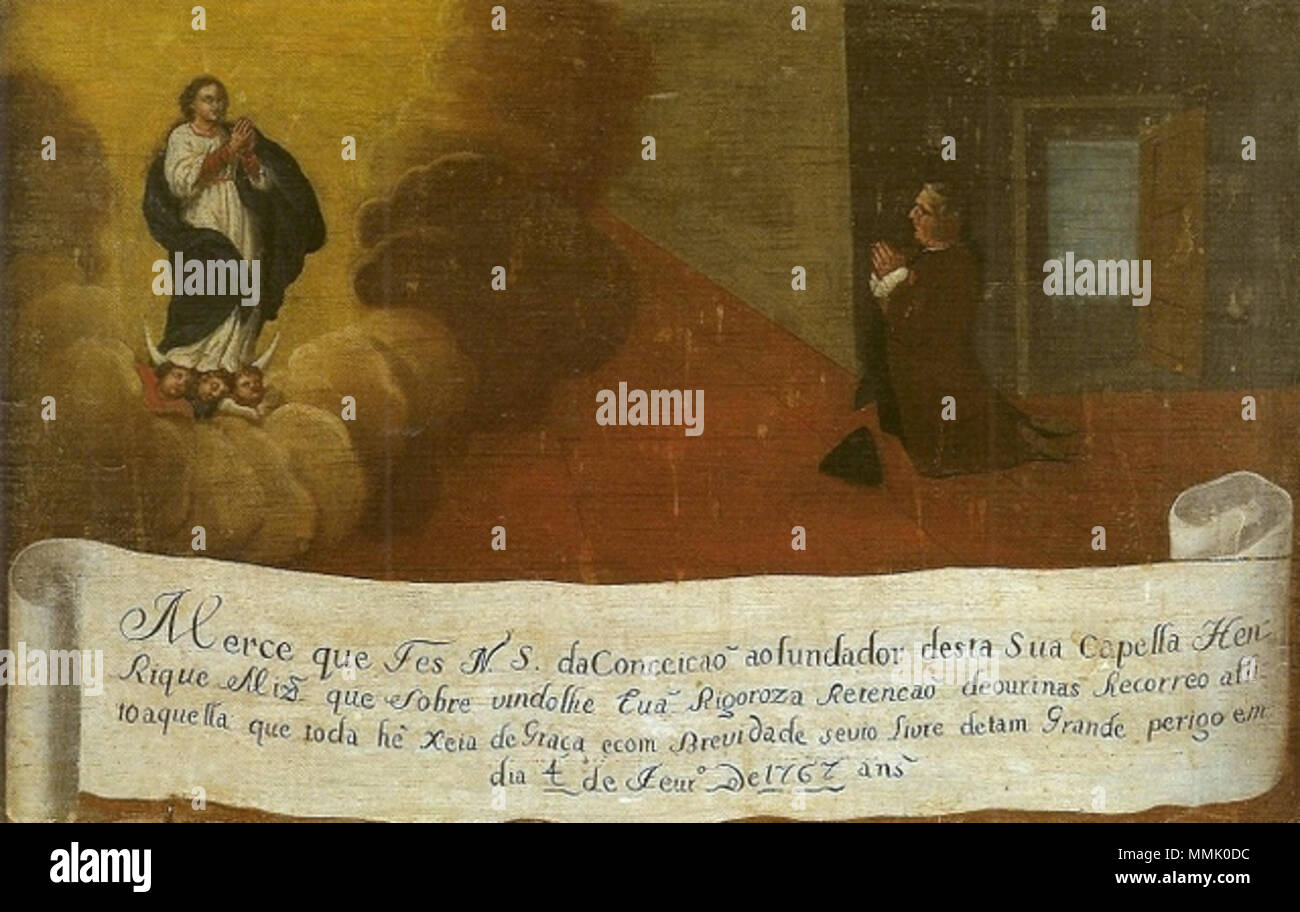 Merce que Fes N. S. daConçeicaõ aofundador desta Sua Capella Hen
Rique que Sobre vindolhe Rigoroza Retencaõ deourinas Recorreo afli
toaquella que toda hé Xeia de Graça ecom Brevidade seuio livre detam Grande perigo em
dia 4 de Feurº De 1767 ans
alamy
Image ID: MMK0DC
www.alamy.com